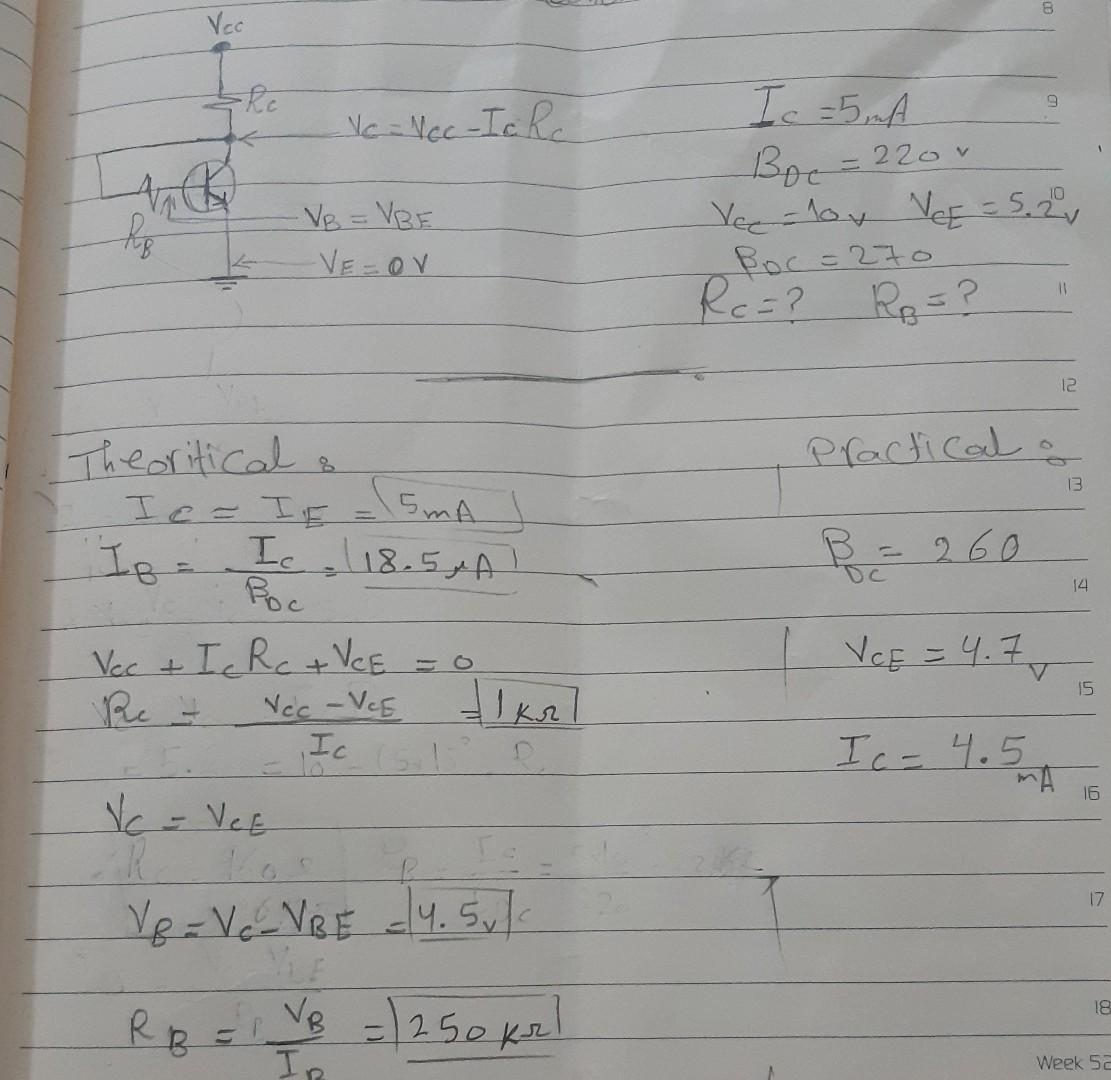 Vcc
Rc
Vc = Vcc - Ic Rc
RB
VB = VBE
VE = 0V
Ic = 5mA
BDC = 220 v
Vcc = 10v VCE = 5.2v
βDC = 270
Rc = ? RB = ?
Theoritical :
Ic = IE = 5mA
IB = Ic / βDC = 18.5 μA
Vcc + Ic Rc + VCE = 0
Rc = Vcc - VCE / Ic = 1 kΩ
Vc = VCE
VB = Vc - VBE = 4.5v
RB = VB / IB = 250 kΩ
Practical :
βDC = 260
VCE = 4.7 v
Ic = 4.5 mA
8
9
10
11
12
13
14
15
16
17
18
Week 52